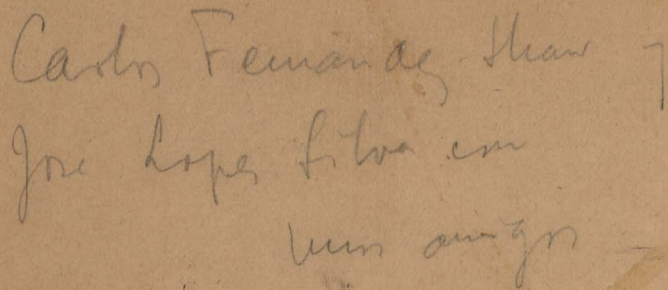 Carlos Fernandez Shaw y
José Lopez Silva con
unos amigos